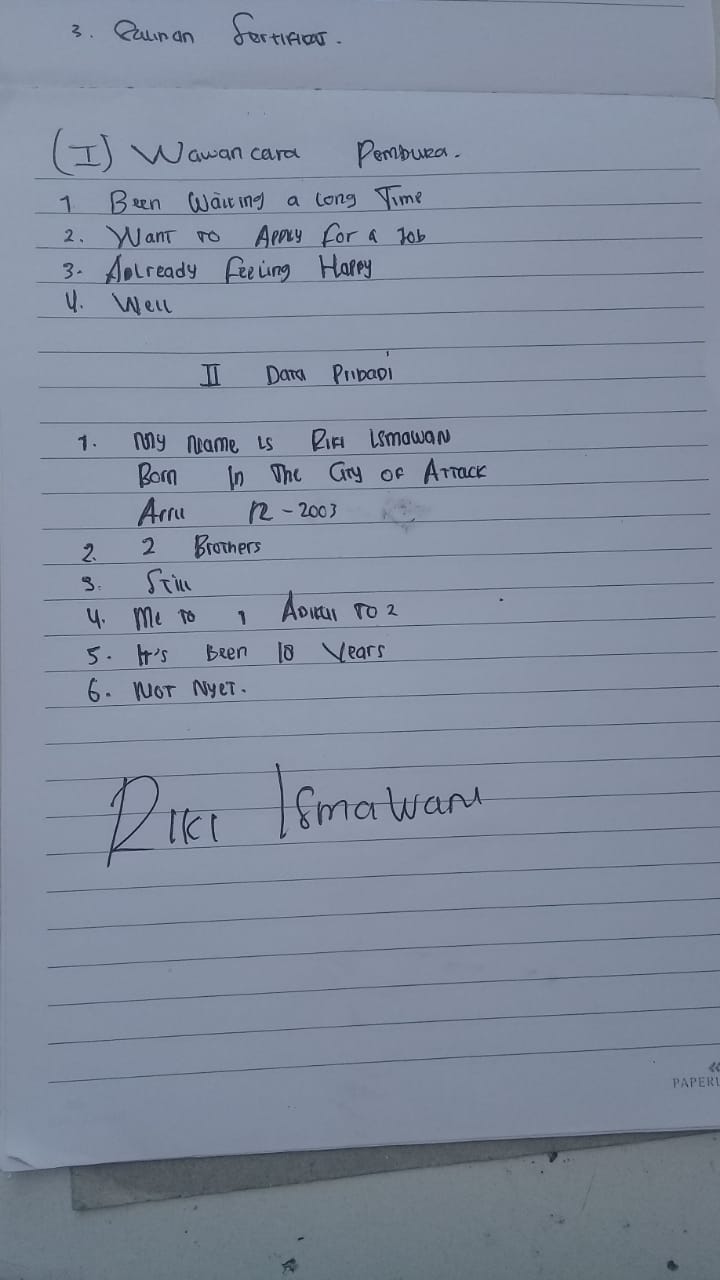 3. Salinan Sertifikat.
(I) Wawancara Pembuka.
1 Been Waiting a long Time
2. Want to Apply for a Job
3. Aolready feeling Happy
4. Well
II Data Pribadi
1. My Name is Riki Ismawan
Born In The City of Attack
12 - 2003
2. 2 Brothers
3. Still
4. Me to 1 to 2
5. It's Been 18 Years
6. Not Nyet.
Riki Ismawan
PAPERL